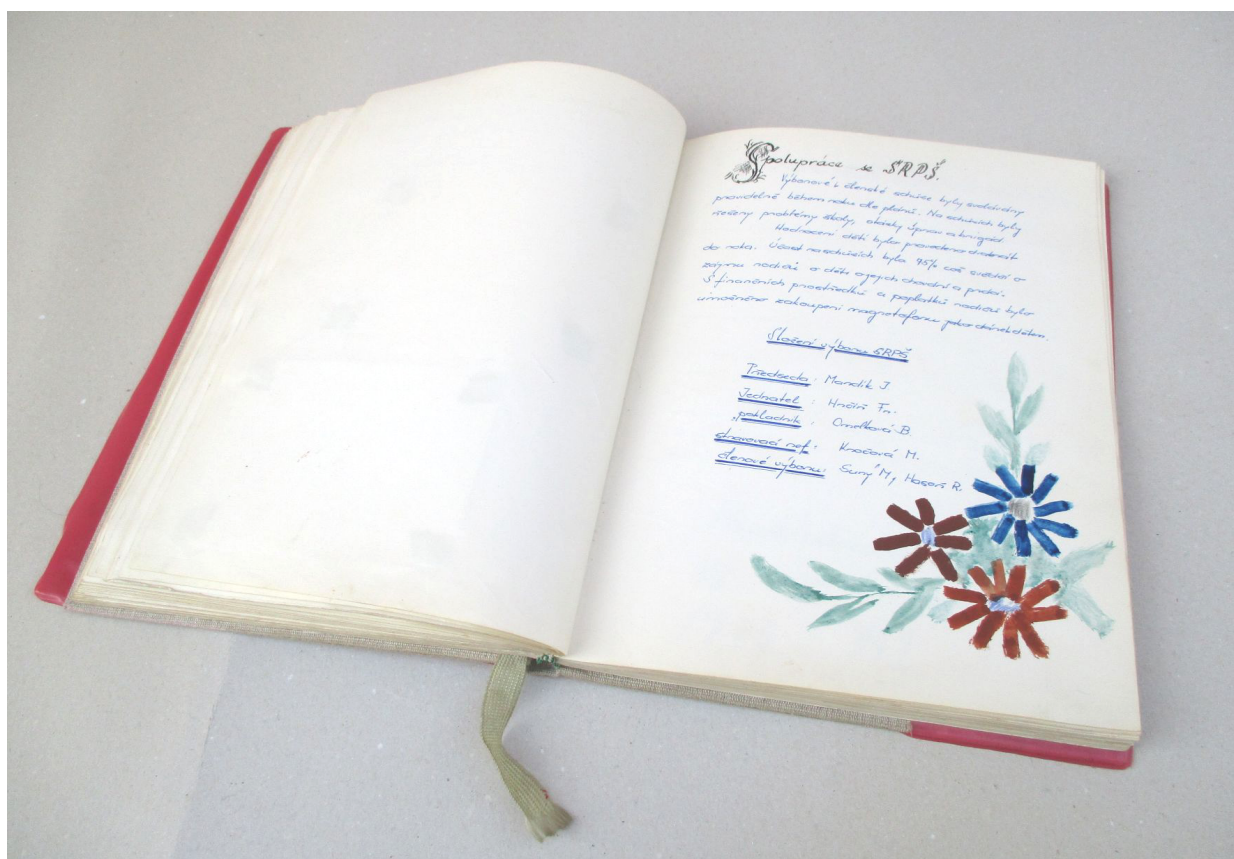 Spolupráce se SRPŠ.
Výborové i členské schůze byly svolávány
pravidelně během roku dle plánů. Na schůzích byly
řešeny problémy školy, otázky úprav a brigád
Hodnocení dětí bylo provedeno dvakrát
do roka. Účast na schůzích byla 95% což svědčí o
zájmu rodičů o děti o jejich chování a práci.
S finančních prostředků a poplatků rodičů bylo
umožněno zakoupení magnetofonu jako dárek dětem.
Složení výboru SRPŠ
Předseda : Mandík J
Jednatel : Hnčíř Fr.
pokladník : Omelková B.
stravovací ref. : Kročová M.
členové výboru: Surý M,